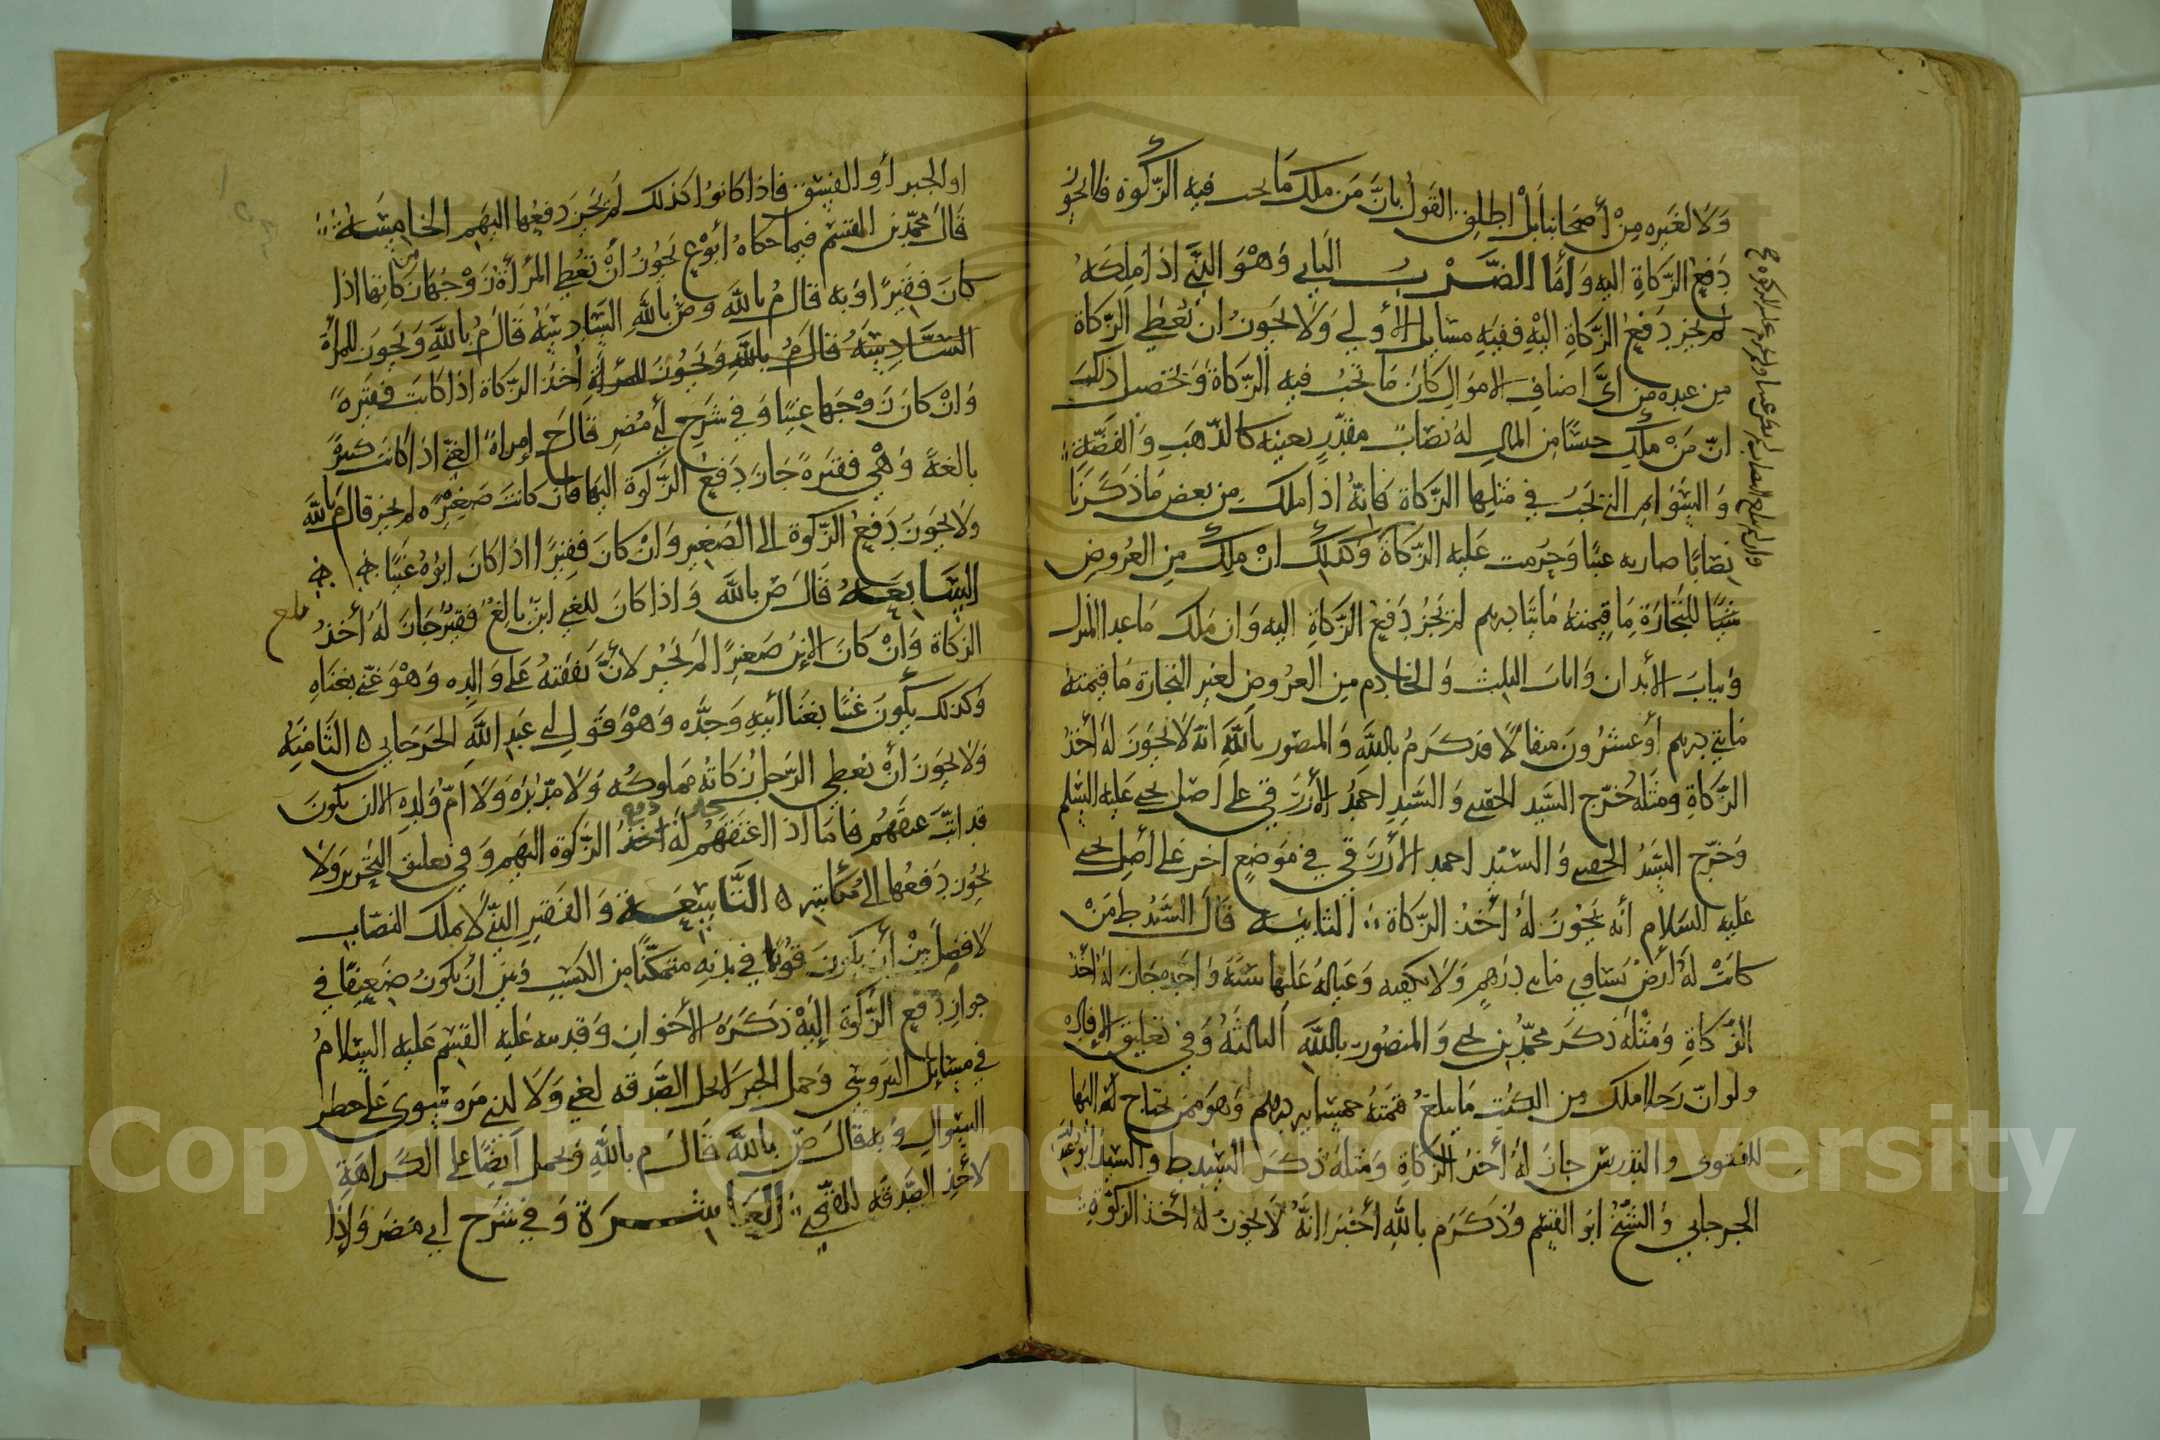 ولا لغيره من أصحابنا بل اطلق القول بان من ملك ما يجب فيه الزكوة فلا يجوز
دفع الزكاة اليه وأما الضرب الثاني وهو الذي اذا ملكه
لم يجز دفع الزكاة اليه ففيه مسايل الأولى ولا يجوز ان تعطى الزكاة
من عبده من أي اصناف الاموال كان ما تجب فيه الزكاة وتحصيل ذلك
ان من ملك جنسًا من المال له نصاب مقدر بعينه كالذهب والفضة
والسوائم التي تجب في مثلها الزكاة فانه اذا ملك من بعض ما ذكرنا
نصابًا صار به غنيًا وحرمت عليه الزكاة وكذلك ان ملك من العروض
شيئًا للتجارة ما قيمته مائتا درهم لم يجز دفع الزكاة اليه وان ملك ما عدا المنزل
وثياب الأبدان واثاث البيت والخادم من العروض لغير التجارة ما قيمته
مائتي درهم أو عشرون مثقالا فذكر م بالله والمنصور بالله انه لا يجوز له أخذ
الزكاة ومثله خرج السيد الحقيني والسيد احمد الأزرقي على اصل يحيى عليه السلم
وخرج السيد الحقيني والسيد احمد الأزرقي في موضع اخر على أصل يحيى
عليه السلام أنه يجوز له أخذ الزكاة الثانية قال السيد ط من
كانت له أرض تساوي مايتي درهم ولا يكفيه وعياله غلتها سنة واحدة جاز له أخذ
الزكاة ومثله ذكر محمد بن يحيى والمنصور بالله الثالثة وفي تعليق الإفادة
ولو ان رجلا ملك من الكتب ما يبلغ قيمته خمسمايه درهم وهو ممن يحتاج اليها
للفتوى والتدريس جاز له أخذ الزكاة ومثله ذكر السيد ط والسيد ابو عبدالله
الجرجاني والشيخ ابو القسم وذكر م بالله أخيرا انه لا يجوز له أخذ الزكوة
او الجبر أو الفسق فاذا كانوا كذلك لم يجز دفعها اليهم الخامسة
قال محمد بن القسم فيما حكاه أبو ع يجوز أن تعطي المرأة زوجها من زكاتها اذا
كان فقيرًا وبه قال م بالله وص بالله السادسة قال م بالله ويجوز للمرأة
السادسة قال م بالله ويجوز للمرأة أخذ الزكاة اذا كانت فقيرة
وان كان زوجها غنيًا وفي شرح أبي مضر قال ح إمرأة الغني اذا كانت كبيرة
بالغة وهي فقيرة جاز دفع الزكوة اليها فان كانت صغيرة لم يجز قال م بالله
ولا يجوز دفع الزكوة الى الصغير وان كان فقيرًا اذا كان ابوه غنيًا
السابعة قال ص بالله واذا كان للغني ابن بالغ فقير جاز له أخذ
الزكاة وان كان الابن صغيرًا لم يجز لأن نفقته على والده وهو غني بغناه
وكذلك يكون غنيا بغنا أبيه وجده وهو قول ابي عبد الله الجرجاني الثامنة
ولا يجوز أن يعطي الرجل زكاته مملوكه ولا مدبره ولا ام ولده الا ان يكون
قد ابت عتقهم فاما اذا اعتقهم له أخذ الزكوة اليهم وفي تعليق التحرير ولا
يجوز دفعها الى مكاتبه التاسعة والفقير الذي لا يملك النصاب
لا فصل بين أن يكون قويًا في بدنه متمكنًا من الكسب وبين ان يكون ضعيفًا في
جواز دفع الزكوة إليه ذكره الأخوان وقد نبه عليه القسم عليه السلام
في مسائل النيروسي وحمل الخبر لا تحل الصدقه لغني ولا لذي مره سوي على حظر
السؤال وبه قال ص بالله قال م بالله ويحمل أيضًا على الكراهة
لأخذ الصدقه للقوي العاشرة وفي شرح ابي مضر وإذا
Copyright © King Saud University